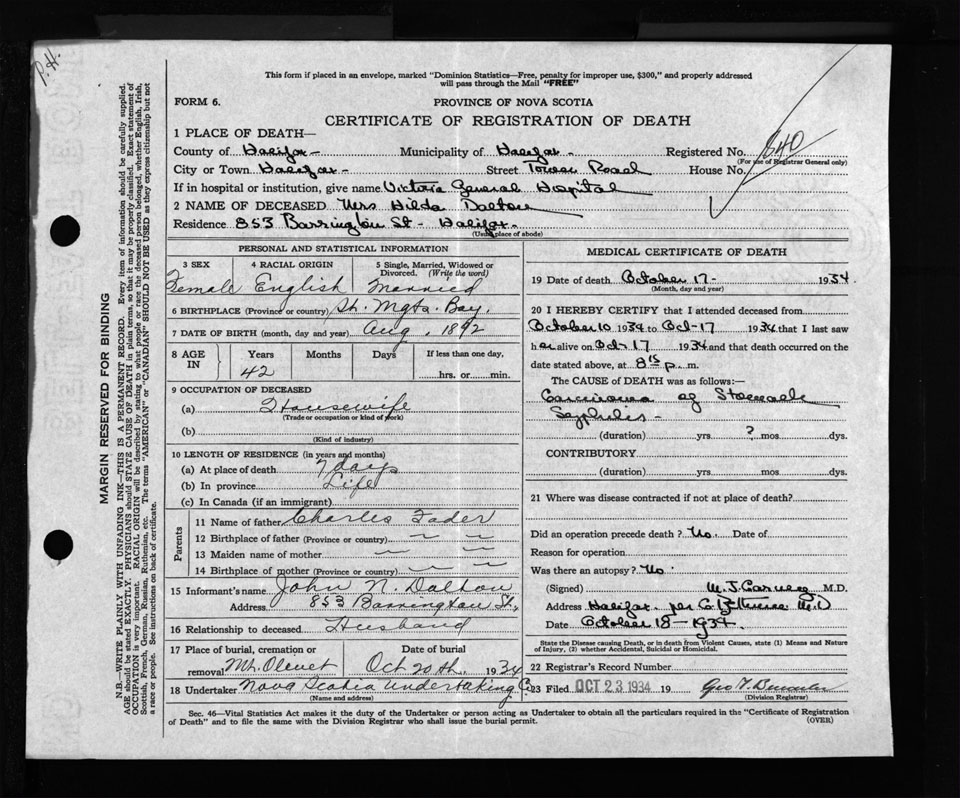 P.H.
This form if placed in an envelope, marked "Dominion Statistics—Free, penalty for improper use, $300," and properly addressed
will pass through the Mail "FREE"
FORM 6.
PROVINCE OF NOVA SCOTIA
CERTIFICATE OF REGISTRATION OF DEATH
1 PLACE OF DEATH—
County of Halifax - Municipality of Halifax - Registered No. 640
(For use of Registrar General only)
City or Town Halifax - Street Tower Road House No.
If in hospital or institution, give name Victoria General Hospital
2 NAME OF DECEASED Mrs Hilda Dalton
Residence 853 Barrington St - Halifax -
(Usual place of abode)
PERSONAL AND STATISTICAL INFORMATION
3 SEX 4 RACIAL ORIGIN 5 Single, Married, Widowed or
Divorced. (Write the word)
Female English Married
6 BIRTHPLACE (Province or country) St. Mgts. Bay.
7 DATE OF BIRTH (month, day and year) Aug. 1892
8 AGE IN Years Months Days If less than one day,
42 hrs. or min.
9 OCCUPATION OF DECEASED
(a) Housewife
(Trade or occupation or kind of work)
(b)
(Kind of industry)
10 LENGTH OF RESIDENCE (in years and months)
(a) At place of death 7 days
(b) In province Life
(c) In Canada (if an immigrant)
Parents
11 Name of father Charles Fader
12 Birthplace of father (Province or country)
13 Maiden name of mother
14 Birthplace of mother (Province or country)
15 Informant's name John N. Dalton
Address 853 Barrington St.
16 Relationship to deceased Husband
17 Place of burial, cremation or Date of burial
removal Mt. Olevet Oct 20th. 1934
18 Undertaker Nova Scotia Undertaking Co
(Name and address)
MEDICAL CERTIFICATE OF DEATH
19 Date of death October 17 - 1934.
(Month, day and year)
20 I HEREBY CERTIFY that I attended deceased from
October 10 1934 to Oct-17 1934 that I last saw
her alive on Oct-17 1934 and that death occurred on the
date stated above, at 8 15 p. m.
The CAUSE OF DEATH was as follows:—
Carcinoma of Stomach
Syphilis -
(duration) yrs ? mos. dys.
CONTRIBUTORY
(duration) yrs. mos. dys.
21 Where was disease contracted if not at place of death?
Did an operation precede death? No. Date of
Reason for operation
Was there an autopsy? No.
(Signed) M.D.
Address Halifax. per M.D
Date October 18 - 1934.
State the Disease causing Death, or in death from Violent Causes, state (1) Means and Nature
of Injury, (2) whether Accidental, Suicidal or Homicidal.
22 Registrar's Record Number
23 Filed OCT 23 1934 19
(Division Registrar)
Sec. 46—Vital Statistics Act makes it the duty of the Undertaker or person acting as Undertaker to obtain all the particulars required in the "Certificate of Registration
of Death" and to file the same with the Division Registrar who shall issue the burial permit.
(OVER)
MARGIN RESERVED FOR BINDING
N.B.—WRITE PLAINLY WITH UNFADING INK—THIS IS A PERMANENT RECORD. Every item of information should be carefully supplied.
AGE should be stated EXACTLY. PHYSICIANS should STATE CAUSE OF DEATH in plain terms, so that it may be properly classified. Exact statement of
OCCUPATION is very important. RACIAL ORIGIN will be described by stating to what people or race the deceased person belonged, whether English, Irish,
Scottish, French, German, Russian, Ruthenian, etc. The terms "AMERICAN" or "CANADIAN" SHOULD NOT BE USED as they express citizenship but not
a race or people. See instructions on back of certificate.